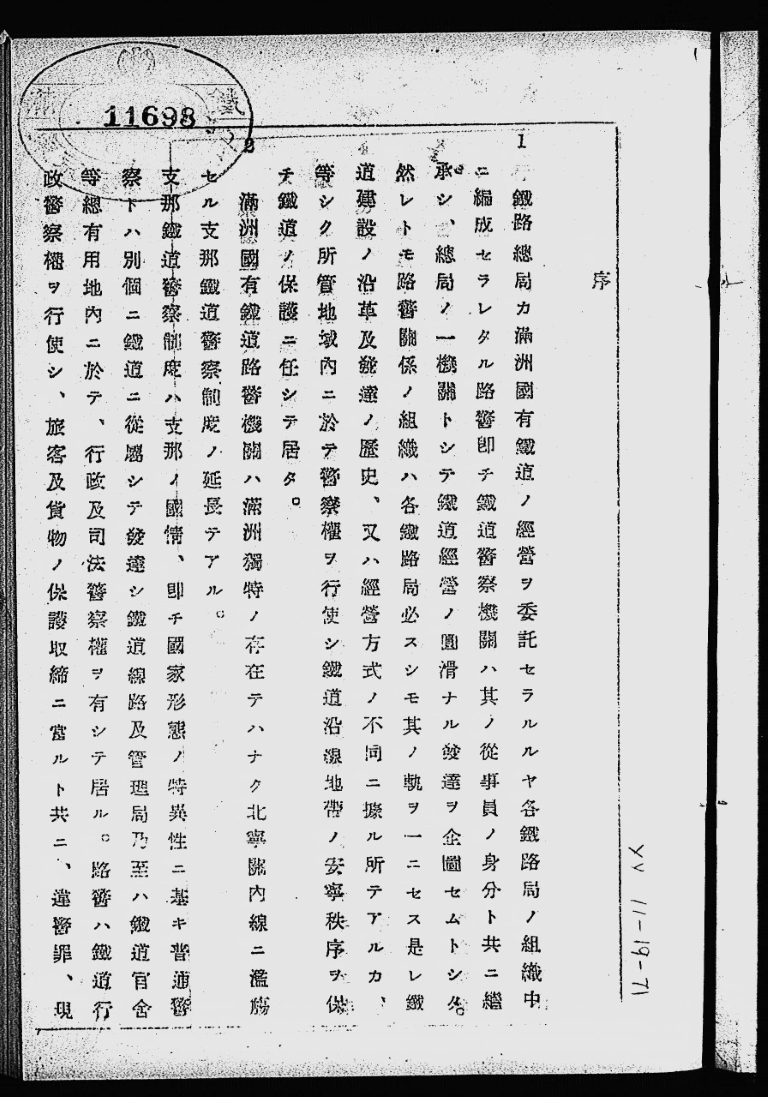 序
1
鐵路總局カ滿洲國有鐵道ノ經營ヲ委託セラルルヤ各鐵路局ノ組織中
ニ編成セラレタル路警卽チ鐵道警察機關ハ其ノ從事員ノ身分ト共ニ繼
承シ、總局ノ一機關トシテ鐵道經營ノ圓滑ナル發達ヲ企圖セムトシタ。
然レトモ路警關係ノ組織ハ各鐵路局必スシモ其ノ軌ヲ一ニセス是レ鐵
道建設ノ沿革及發達ノ歷史、又ハ經營方式ノ不同ニ據ル所テアルカ、
等シク所管地域內ニ於テ警察權ヲ行使シ鐵道沿線地帶ノ安寧秩序ヲ保
チ鐵道ノ保護ニ任シテ居タ。
2
滿洲國有鐵道路警機關ハ滿洲獨特ノ存在テハナク北寧關內線ニ濫觴
セル支那鐵道警察制度ノ延長テアル。
支那鐵道警察制度ハ支那ノ國情、卽チ國家形態ノ特異性ニ基キ普通警
察トハ別個ニ鐵道ニ從屬シテ發達シ鐵道線路及管理局乃至ハ鐵道官舍
等總有用地內ニ於テ、行政及司法警察權ヲ有シテ居ル。路警ハ鐵道行
政警察權ヲ行使シ、旅客及貨物ノ保護取締ニ當ルト共ニ、違警罪、現
11698
XV 11-19-71